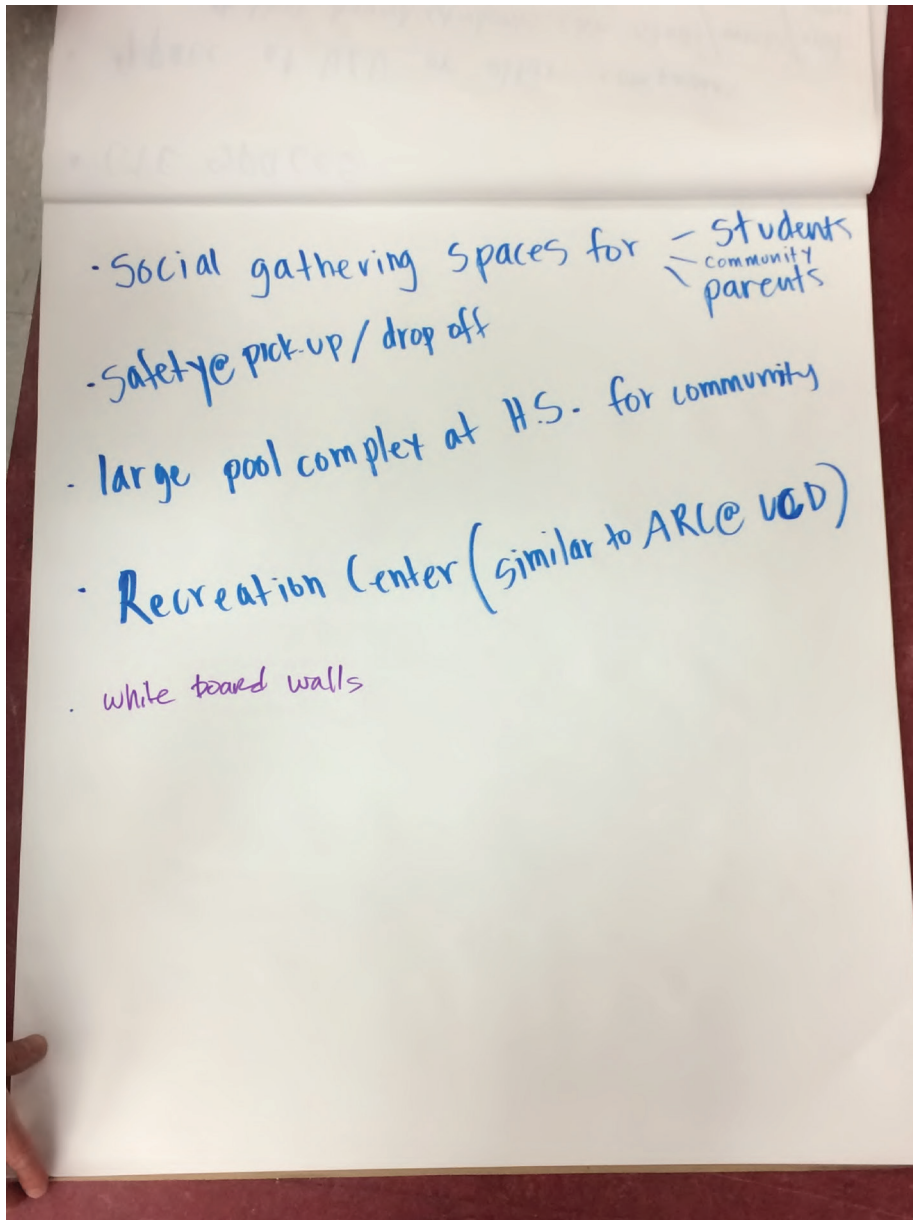 · Social gathering spaces for – students
– community
\ parents
· Safety@ pick-up / drop off
· large pool complex at H.S. for community
· Recreation Center (similar to ARC@ UCD)
· white board walls